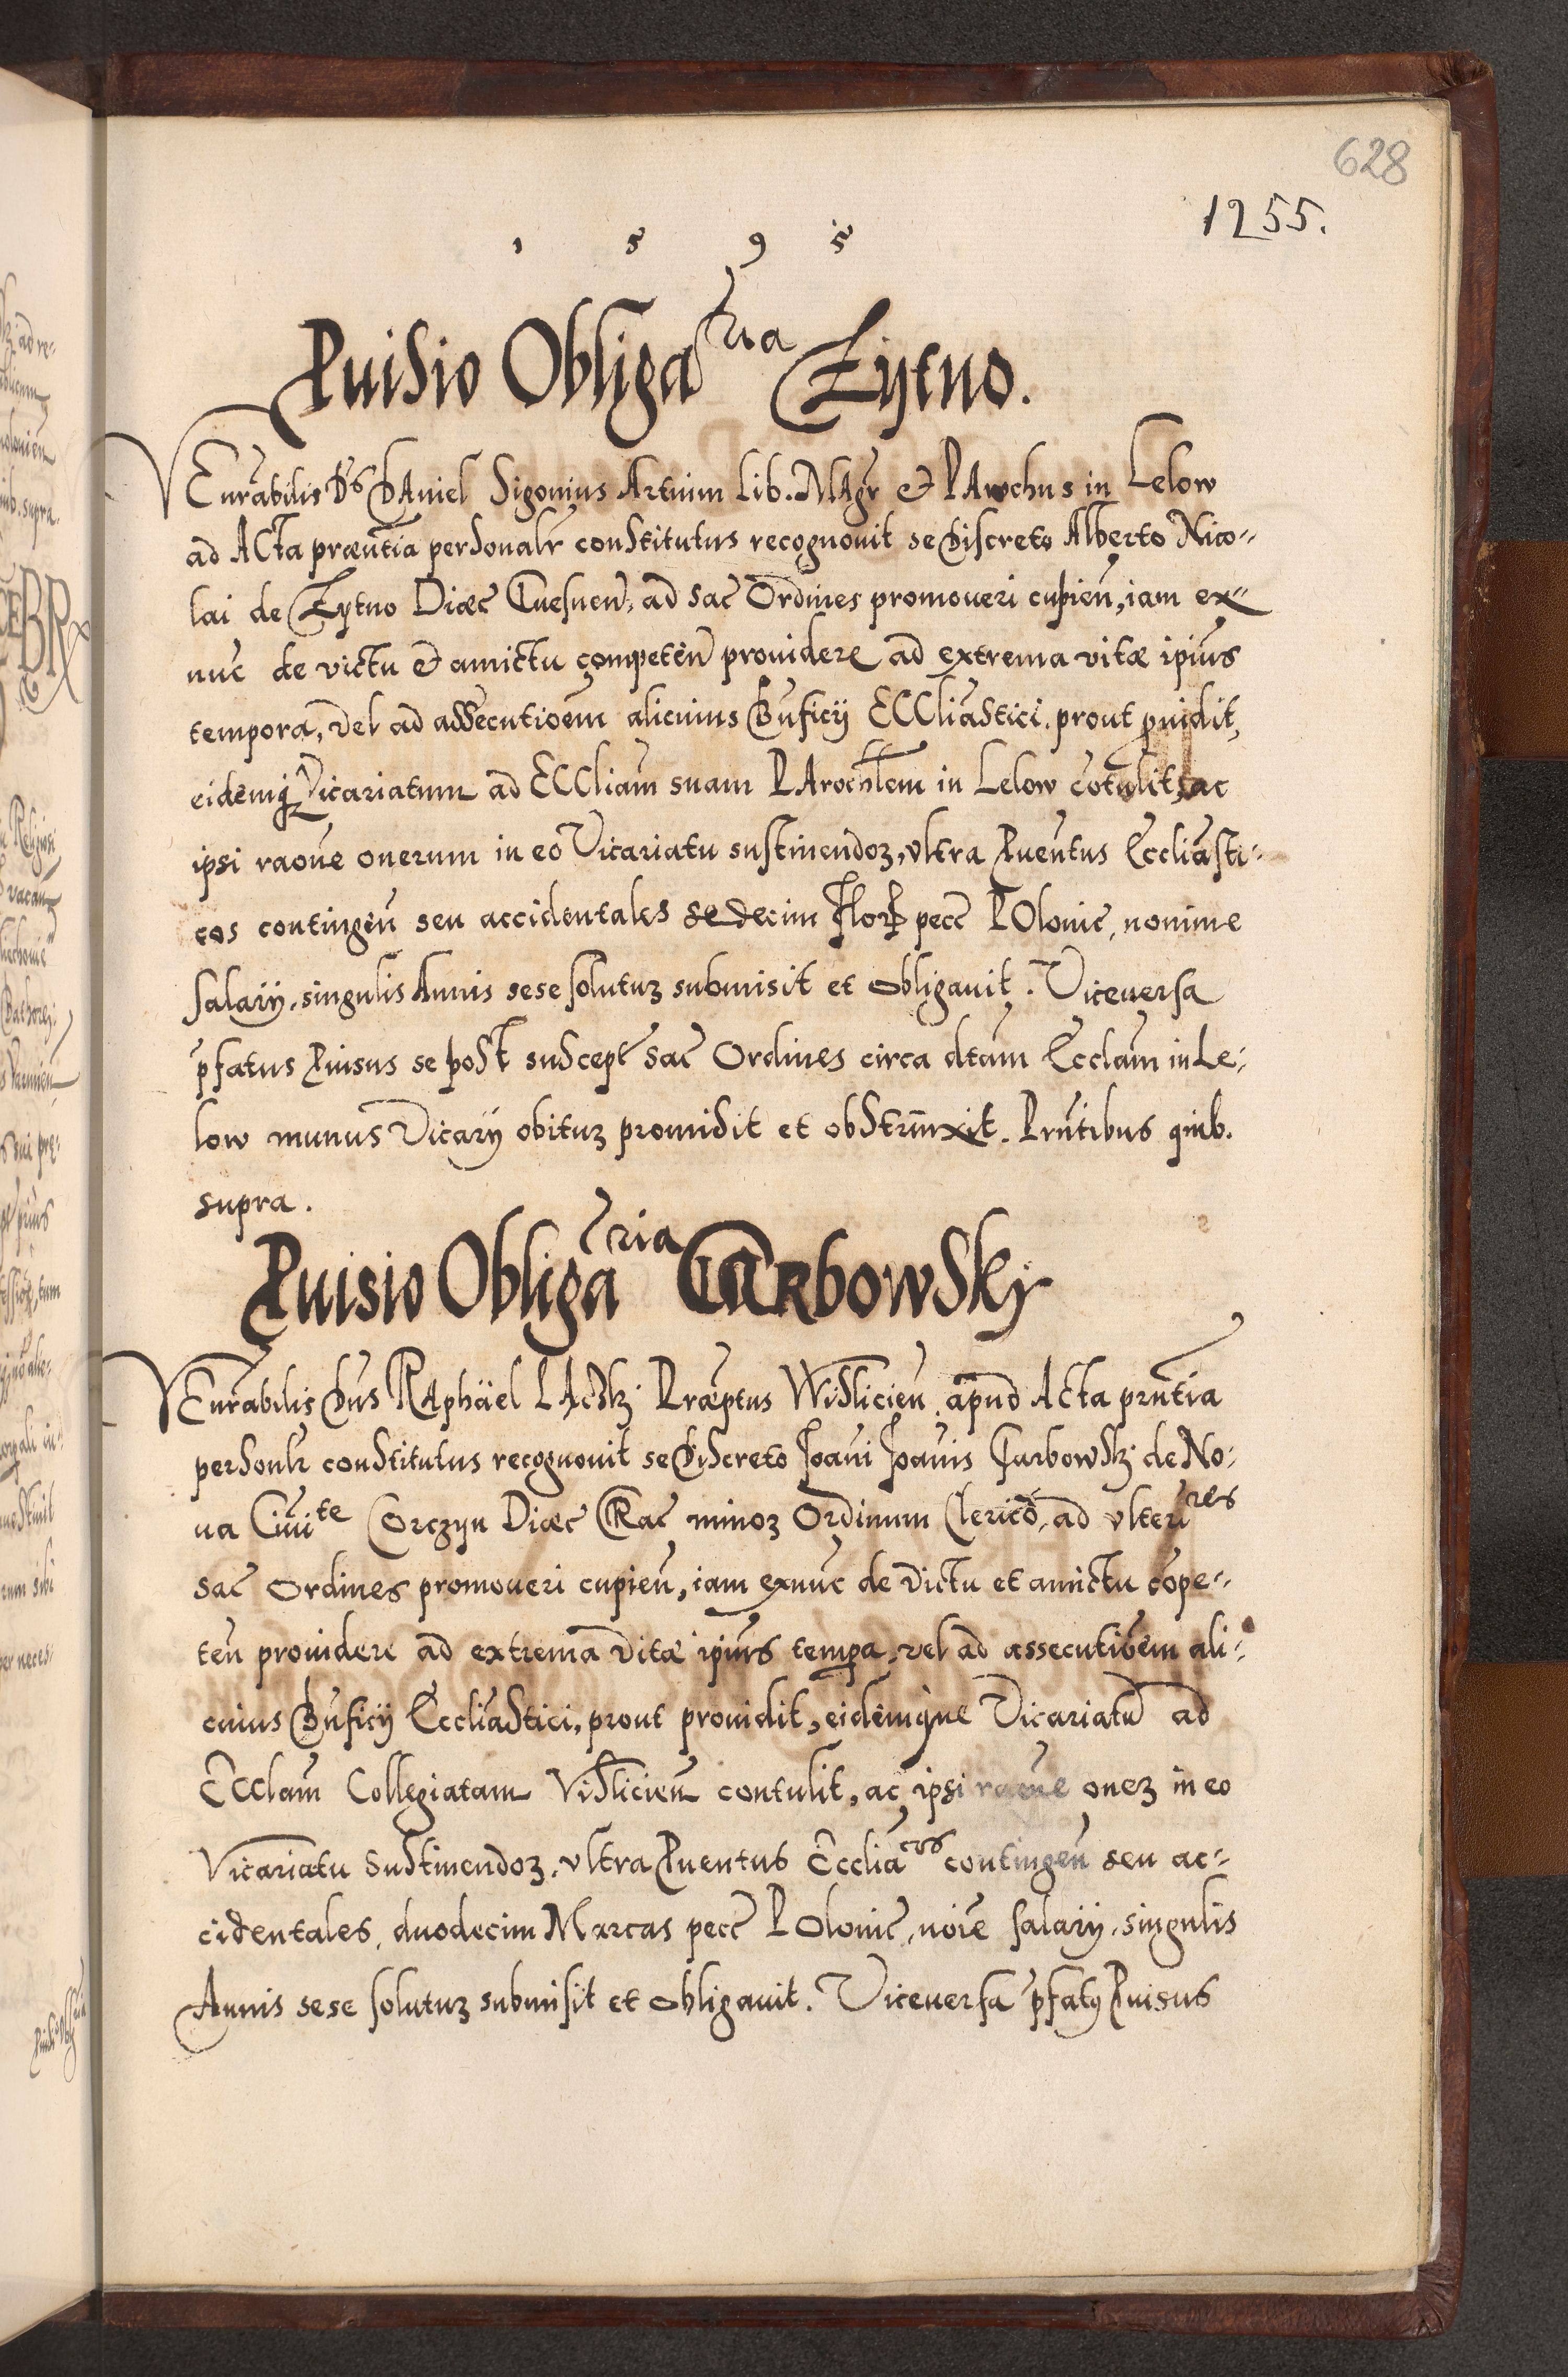 628
1255.
1 5 9 5
Puisio Obligaria Żytno.
VEnrabilis Ds DAniel Sigonius Artium Lib. MAgr et PArochus in Lelow
ad ACta præntia personalr constitutus recognouit se discreto Alberto Nico-
lai de Żytno Diæc Gnesnen, ad sac Ordines promoueri cupien, iam ex-
nuc de victu et amictu competen prouidere ad extrema vitæ ipius
tempora, vel ad assecutioem alicuius Bnficij ECCliastici prout puidit,
eidemq Vicariatum ad ECCliam suam PArochlem in Lelow cotulit, ac
ipsi raone onerum in eo Vicariatu sustinendoz, vltra Puentus Eccliasti-
cos contingen seu accidentales sedecim Flor pecc POlonic, nomine
salarij, singulis Annis sese soluturz submisit et obligauit. Viceuersa
pfatus Puisus se post suscept sac Ordines circa dtam Ecclam in Le-
low munus Vicarij obiturz promisit et obstrinxit. Prntibus quib.
supra.
Puisio Obligaria GARbowSkj
VEnrabilis Dns RAphäel LAckj Præptus Wislicien. apud Acta prntia
personlr constitutus recognouit se discreto Joani Joanis Garbowskj de No-
ua Ciuite Corczyn Diæc CRac minoz Ordinum Clerico, ad vlterires
sac Ordines promoueri cupien, iam exnuc de victu et amictu cope-
ten prouidere ad extrema vitæ ipius tempa, vel ad assecutioem ali-
cuius Bnficij Eccliastici, prout prouidit, eidemque Vicariatu ad
ECClam Collegiatam Vislicien contulit, ac ipsi raone onez in eo
Vicariatu sustinendoz, vltra Puentus Eccliacos contingen seu ac-
cidentales, duodecim Marcas pecc POlonic, noie salarij, singulis
Annis sese soluturz submisit et obligauit. Viceuersa pfatq Puisus